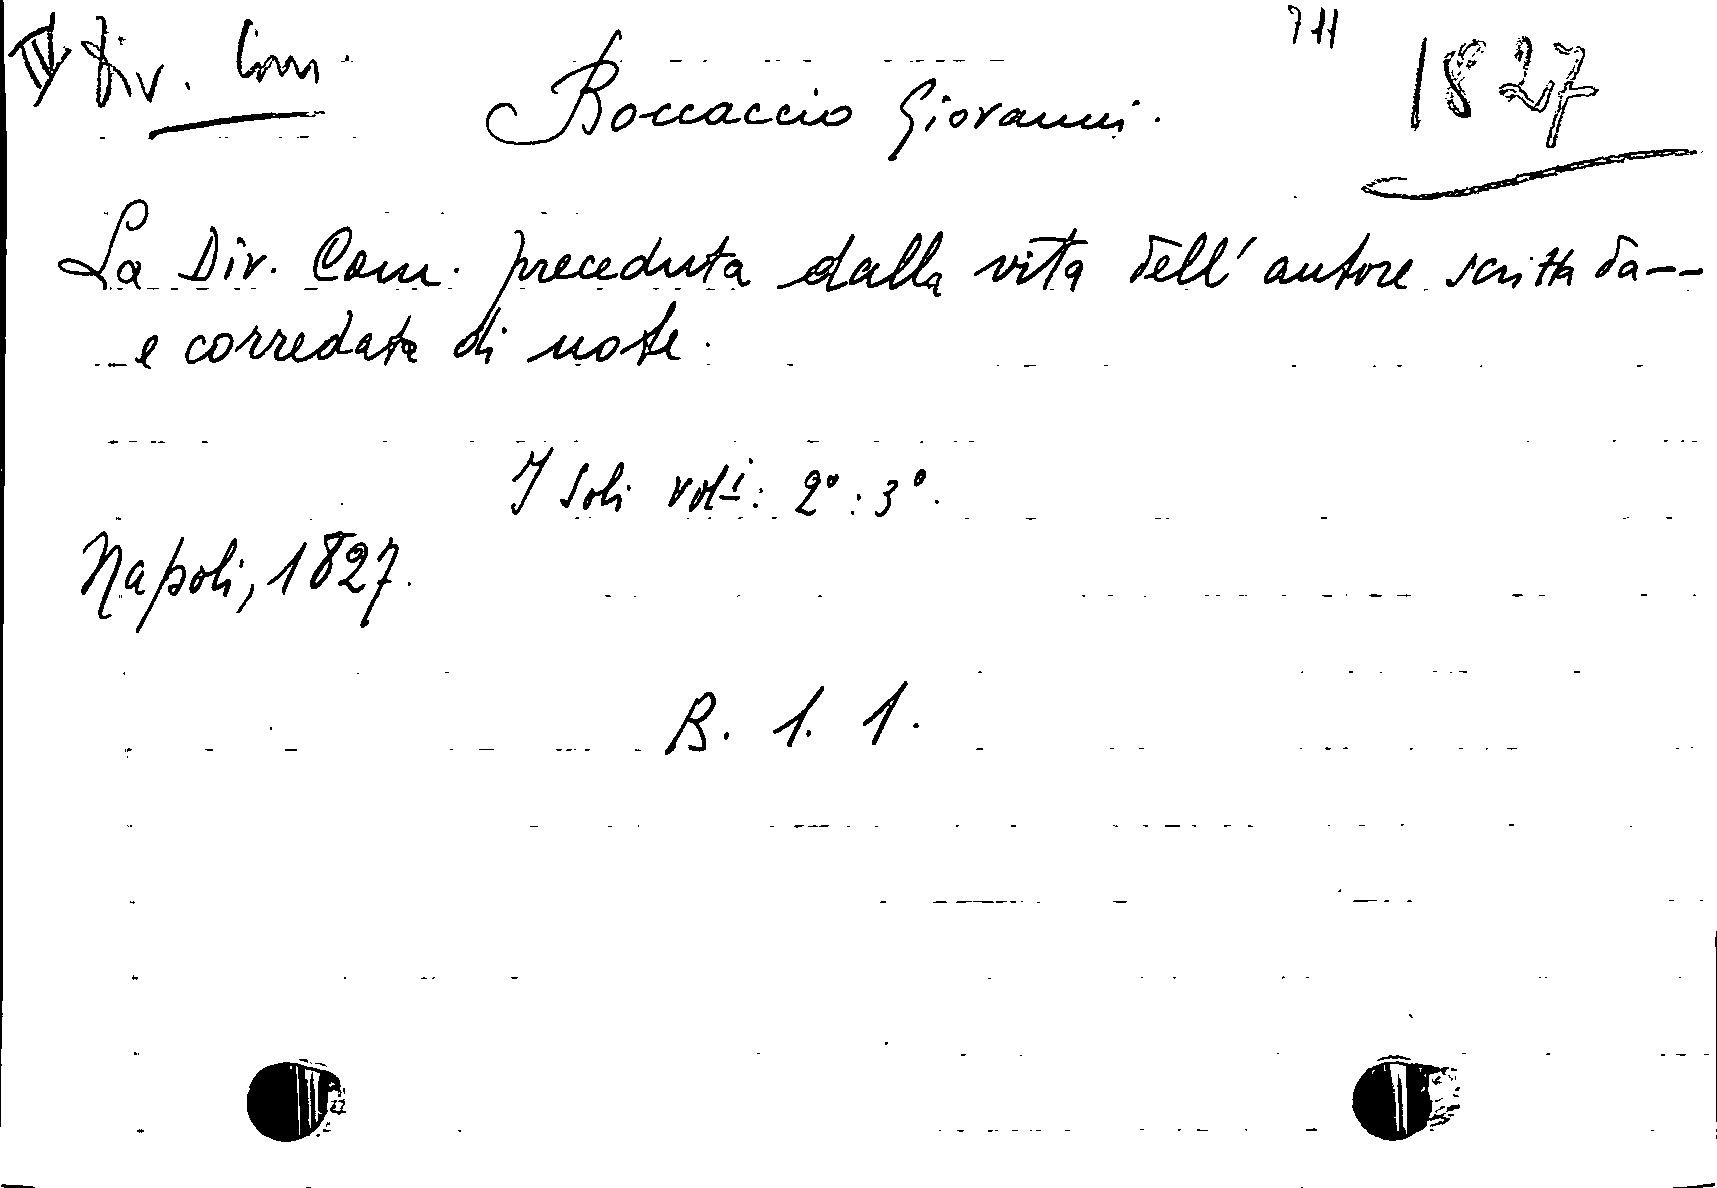 IV Div. Com. 711 1827
Boccaccio Giovanni.
La Div. Com. preceduta dalla vita dell' autore scritta da--
e corredata di note.
I soli voli: 2°: 3°.
Napoli, 1827.
B. 1. 1.